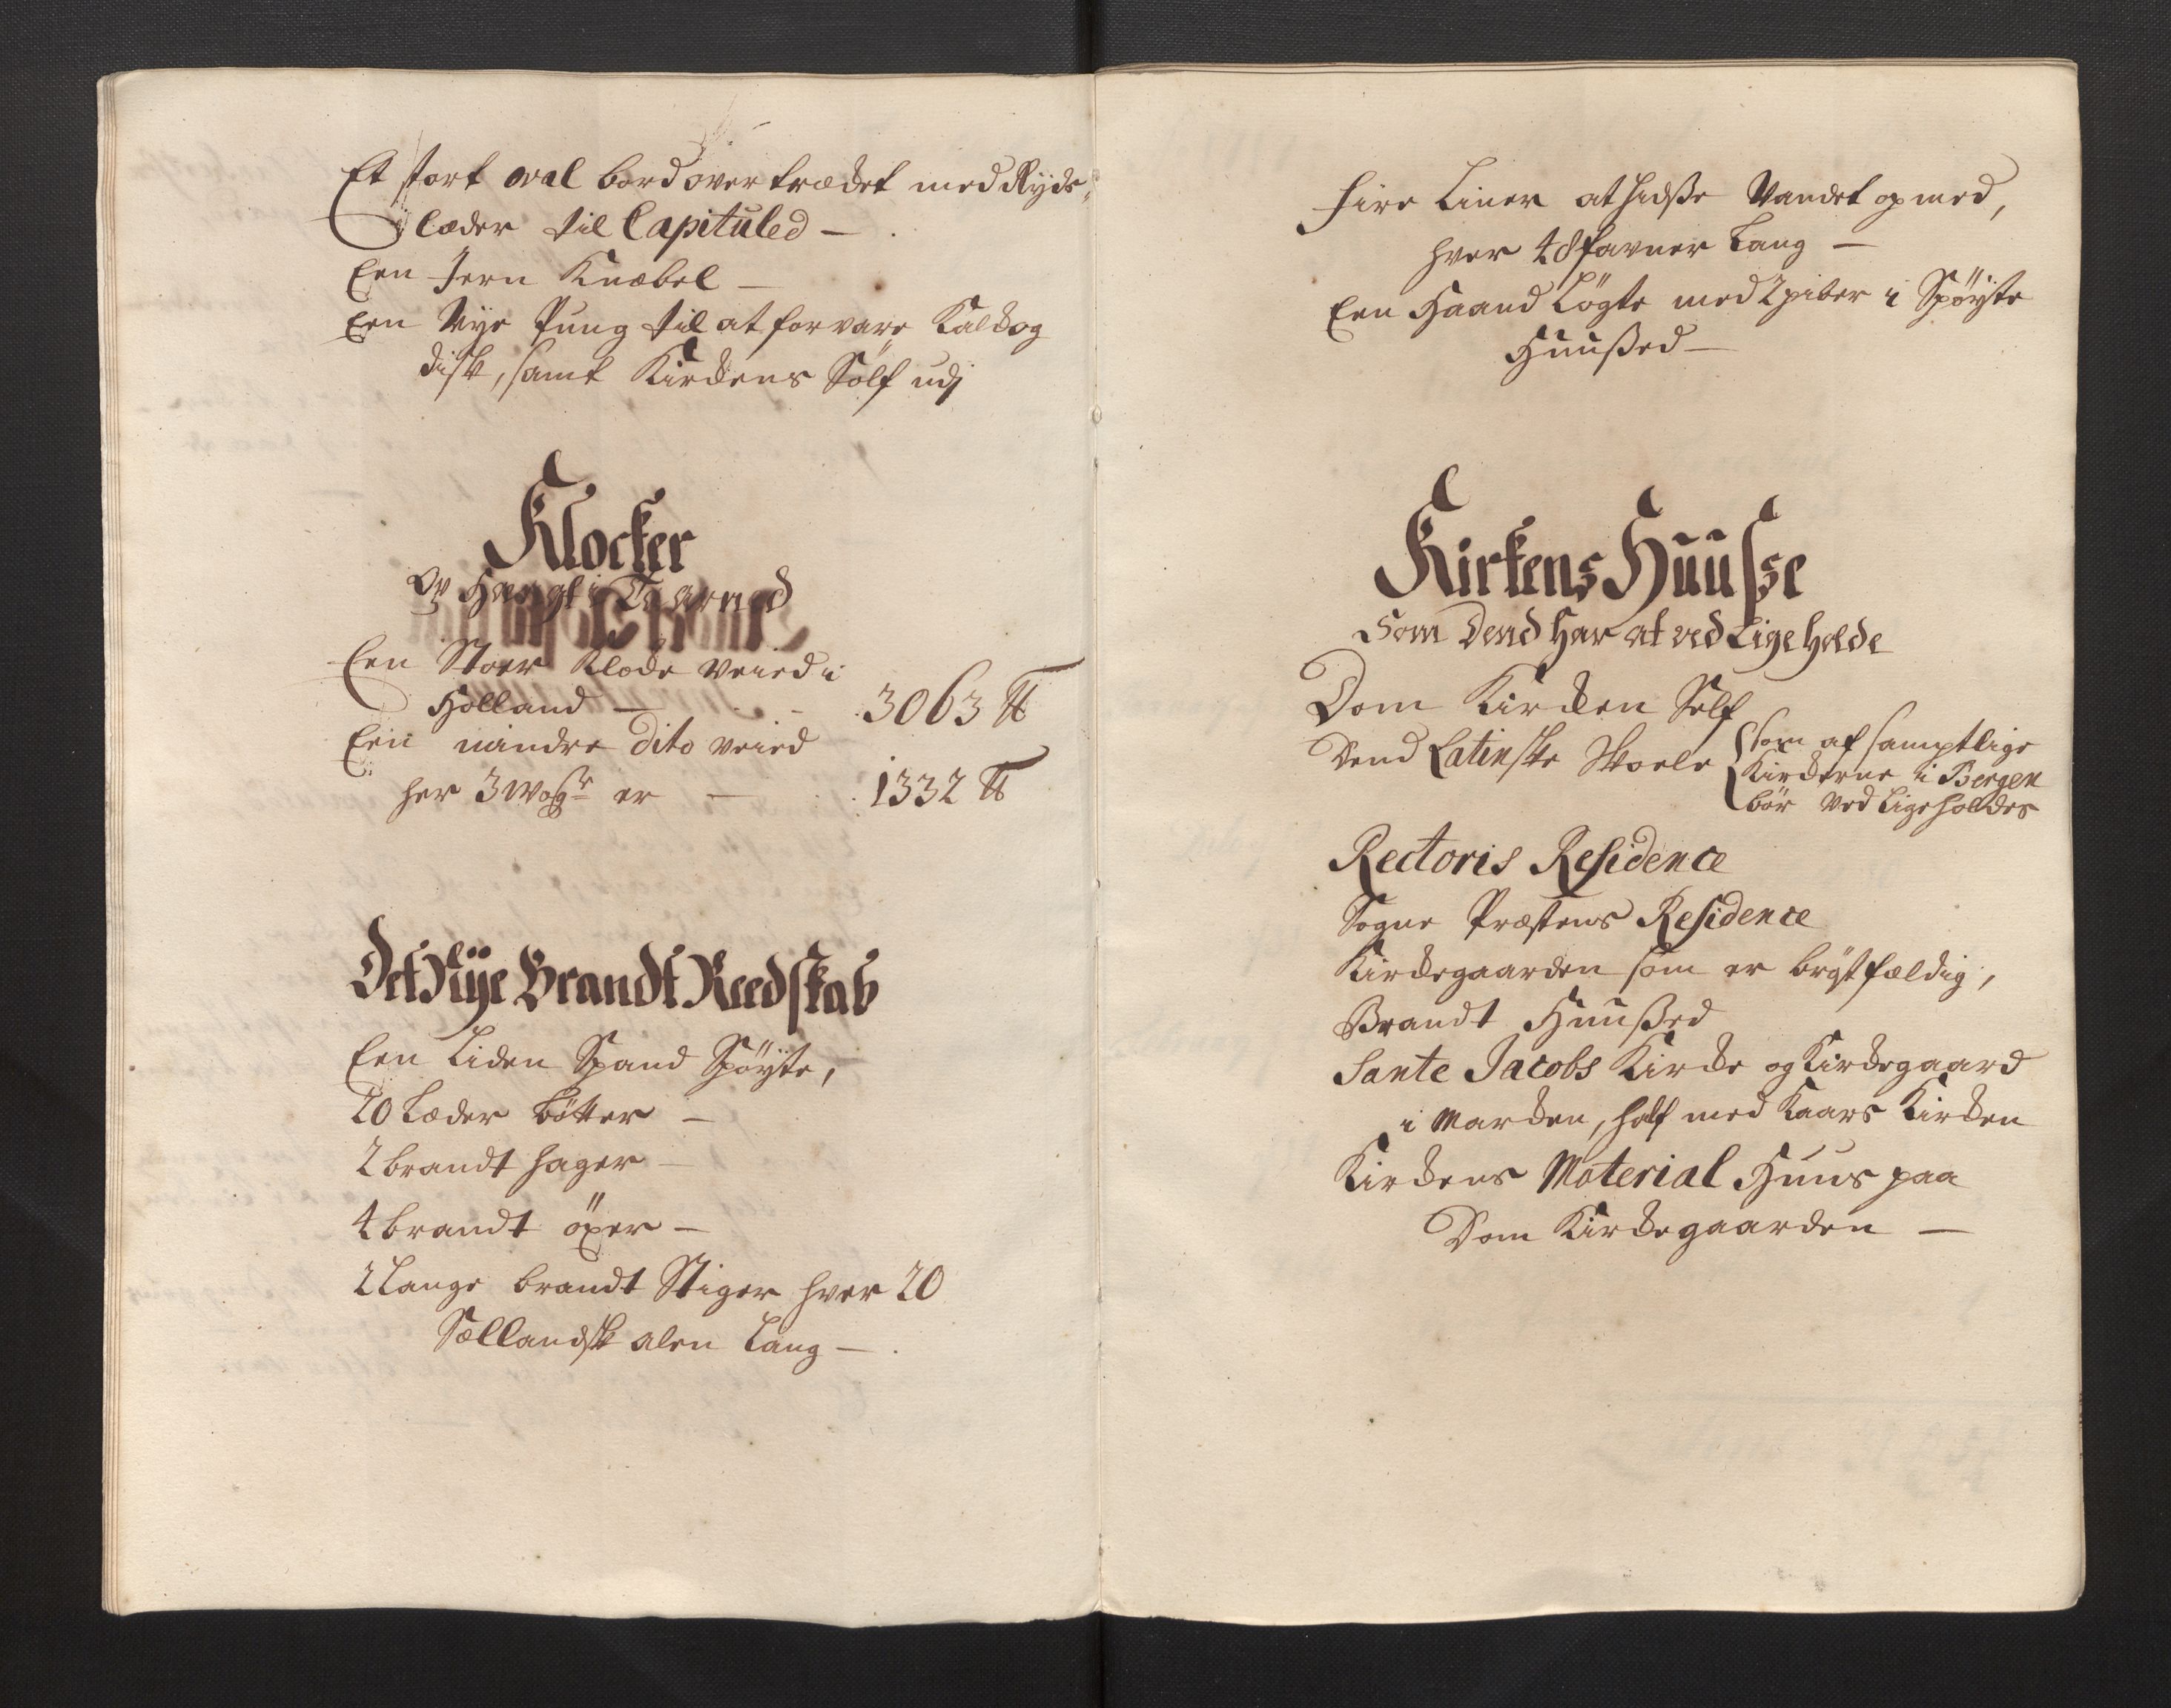 Et stort oval bord overtrædet med Ryds-
læder til Capituled —
Een Jern Knæbel —
Een Nye Pung til at forvare Kalk og
disk, samt Kirckens Sölf udj
Klocker
Op Hængt i Taarned
Een Stoer Klocke veied i
Holland — 3063 ℔
Een mindre dito veied
her 3 Wogr er — 1332 ℔
Det Nÿe Brandt Reedskab
Een Liden Spand Spöÿte,
20 Læder bötter —
2 brandt hager —
4 brandt öxer —
2 lange brandt Stiger hver 20
Sællandsk alen Lang —
fire Liner at hidsse Vandet op med,
hver 48 favner Lang —
Een Haand Lögte med 2 piber i Spöÿte
Huusßed —
Kirkens Huusse
Som Dend Har at ved Lige Holde
Dom Kircken Self
Dend Latinske Skoele som af samptlige
Kirckerne i Bergen
bör ved Lige holdes
Rectoris Residence
Sogne Præstens Residence
Kirckegaarden som er bröstfældig,
Brandt Huusßed
Sante Jacobs Kircke og Kirckegaard
i Marcken, half med Kaars Kircken
Kirckens Material Huus paa
Dom Kirckegaarden —